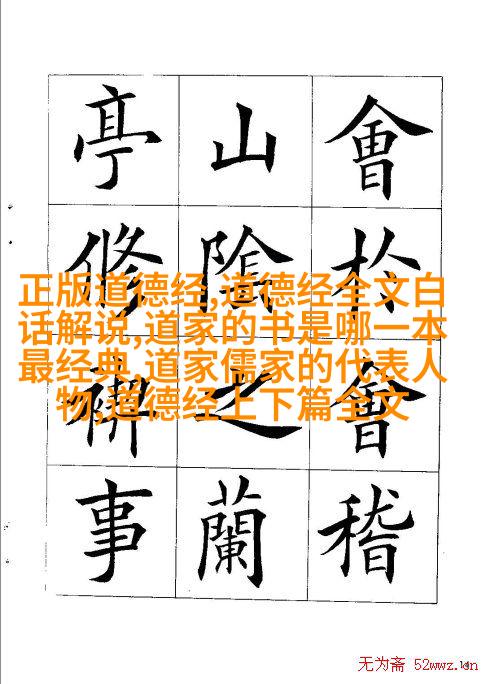 會扵會稽
山陰之蘭
亭修禊事
正版道德经,道德经全文白
话解说,道家的书是哪一本
最经典,道家儒家的代表人
物,道德经上下篇全文
无为斋 52wwz.cn